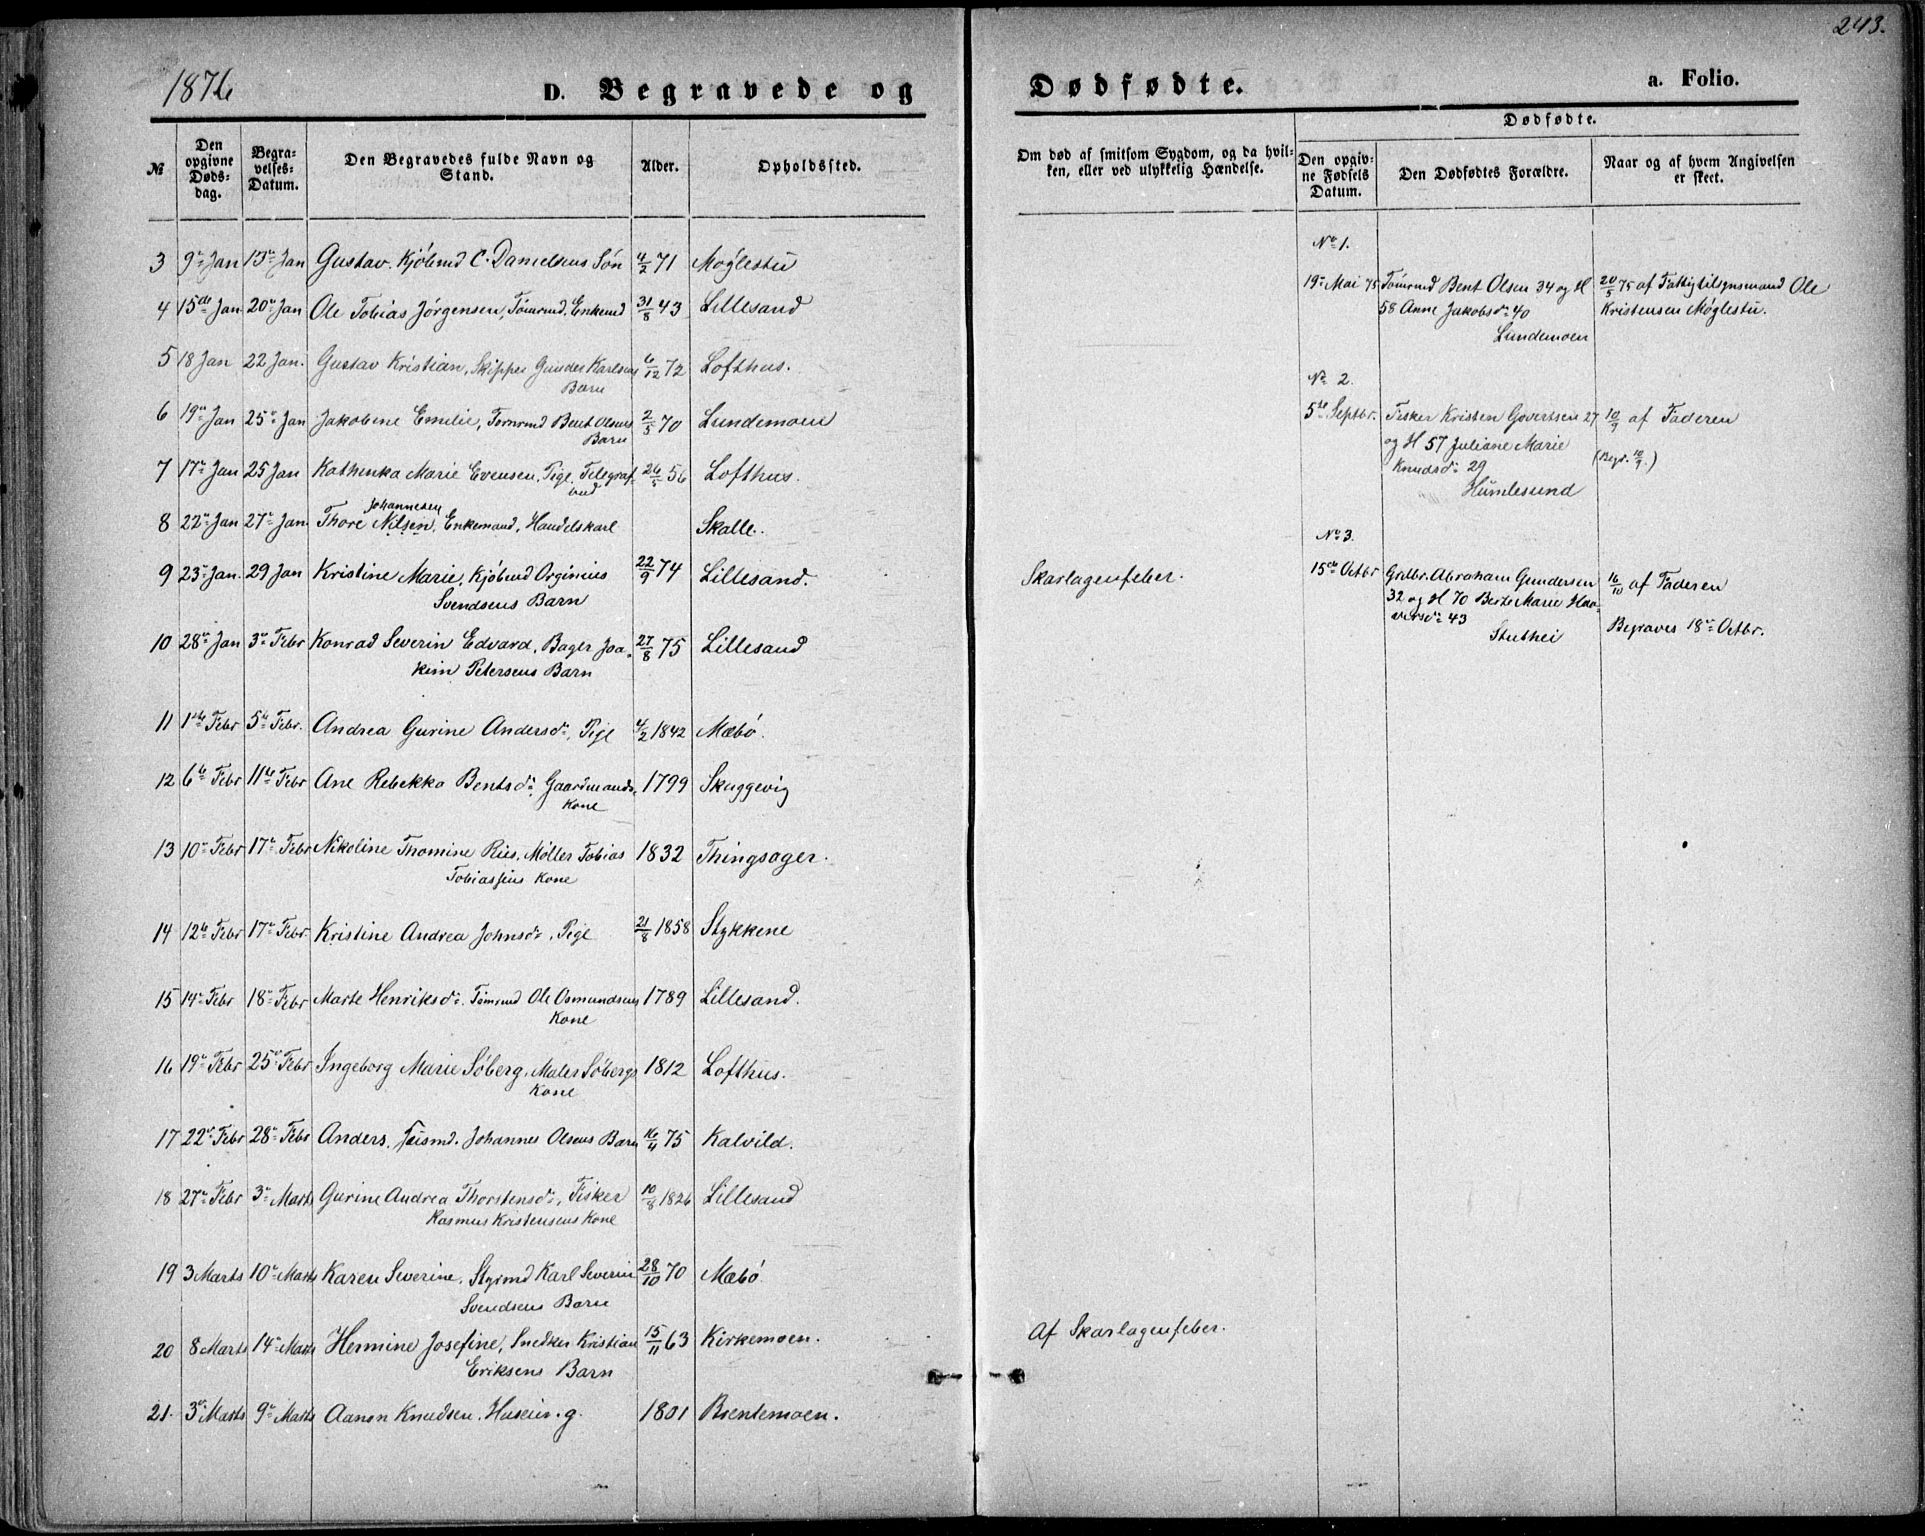 243.
1876
D. Begravede og
Dødfødte.
a. Folio.
№
Den opgivne Døds-dag.
Begra-velses-Datum.
Den Begravedes fulde Navn og Stand.
Alder.
Opholdssted.
Om død af smitsom Sygdom, og da hvil-ken, eller ved ulykkelig Hændelse.
Dødfødte.
Den opgiv-ne Fødsels Datum.
Den Dødfødtes Forældre.
Naar og af hvem Angivelsen er skeet.
3 9de Jan 13de Jan Gustav. Kjöbmd C. Danielsens Sön 4/2 71 Moglestu
4 15de Jan 20de Jan Ole Tobias Jörgensen, Tömrmd. Enkemd 31/8 43 Lillesand
5 18 Jan 22 Jan. Gustav Kristian, Skipper Gunder Karlsens 6/12 72 Lofthus.
Barn
6 19de Jan 25de Jan Jakobine Emelie, Tomrmd Bent Olsens 2/5 70 Lundemoen
Barn
7 17de Jan 25 Jan Kathinka Marie Evensen, Pige, Telegraf- 26/5 56 Lofthus.
Johannesen
8 22de Jan 27de Jan. Thore Nilsen, Enkemand, Handelskarl Skalle.
9 23de Jan. 29 Jan Kristine Marie, Kjöbmd Orginius 22/9 74 Lillesand. Skarlagenfeber.
Svendsens Barn
10 28de Jan 3de Febr Konrad Severin Edvard, Bager Joa- 27/8 75 Lillesand
kim Petersens Barn
11 1ste Febr 5te Febr. Andrea Gurine Andersdr, Pige 4/2 1842 Mæbö.
12 6te Febr 11te Febr Ane Rebekka Bentsdr Gaardmands- 1799 Skuggevig
Kone
13 10de Febr 17de Febr Nikoline Thomine Ries, Möller Tobias 1832 Thingsager.
Tobiassens Kone
14 12te Febr 17de Febr. Kristine Andrea Johnsdr, Pige 21/8 1858 Stykkene
15 14de Febr 18de Febr Marte Henriksdr. Tömrmd Ole Osmundsens 1789 Lillesand.
Kone
16 19de Febr 25de Febr Ingeborg Marie Söberg, Maler Söbergs 1812 Lofthus.
Kone
17 22de Febr 28de Febr Anders, Johannes Olsens Barn 16/4 75 Kalvild.
18 27de Febr 3de Marts Gurine Andrea Thorstensdr, Fisker 10/8 1826 Lillesand
Rasmus Kristensens Kone
19 3 Marts 10de Marts Karen Severine, Styrmd Karl Severin 28/10 70 Mæbö
Svendsens Barn
20 8 Marts 14de Marts Hermine Josefine, Snedker Kristian 15/11 63 Kirkemoen. Af Skarlagenfeber.
Eriksens Barn
21. 3de Marts 9de Marts Aanon Knudsen, 1801 Brentemoen.
No 1.
19de Mai 75 Tömrmd Bent Olsen 34 og H 20/5 75 af Fattigtilsynsmand Ole
58 Anne Jakobsdr 40 Kristensen Möglestu.
Lundemoen
No 2.
5te Septbr. Fisker Kristen Govertsen 27 10/9 af Faderen
og H 57 Juliane Marie (Begr. 10/9.)
Knudsdr 29
Humlesund
No 3.
15de Octbr Grdbr. Abraham Gundersen 16/10 af Faderen
32 og H 70 Berte Marie Haa-
versdr 43 Begraves 18de Octbr.
Stuthei